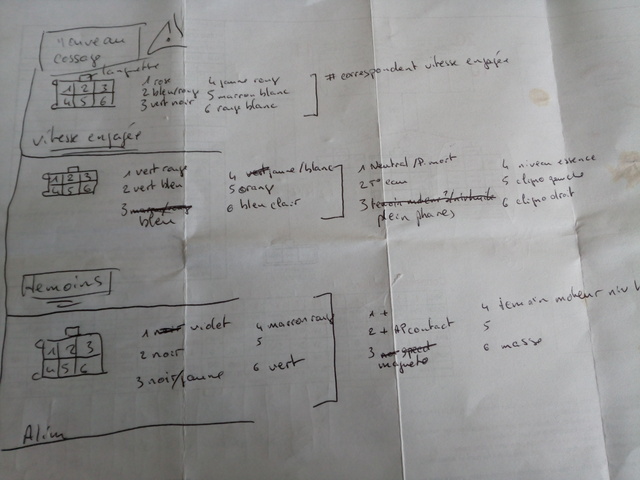 Nouveau
cossage
languette
1 2 3
4 5 6
1 rose
2 bleu/rouge
3 vert noir
4 jaune rouge
5 marron blanc
6 rouge blanc
# correspondent vitesse engagée
Vitesse engagée
1 2 3
4 5 6
1 vert rouge
2 vert bleu
3 bleu
4 jaune/blanc
5 orange
6 bleu clair
1 Neutral/P. mort
2 T° eau
3
plein phares
4 niveau essence
5 cligno gauche
6 cligno droit
Temoins
1 2 3
4 5 6
1 violet
2 noir
3 noir/jaune
4 marron rouge
5
6 vert
1 +
2 + AP contact
3
magneto
4 temoin moteur niv
5
6 masse
Alim